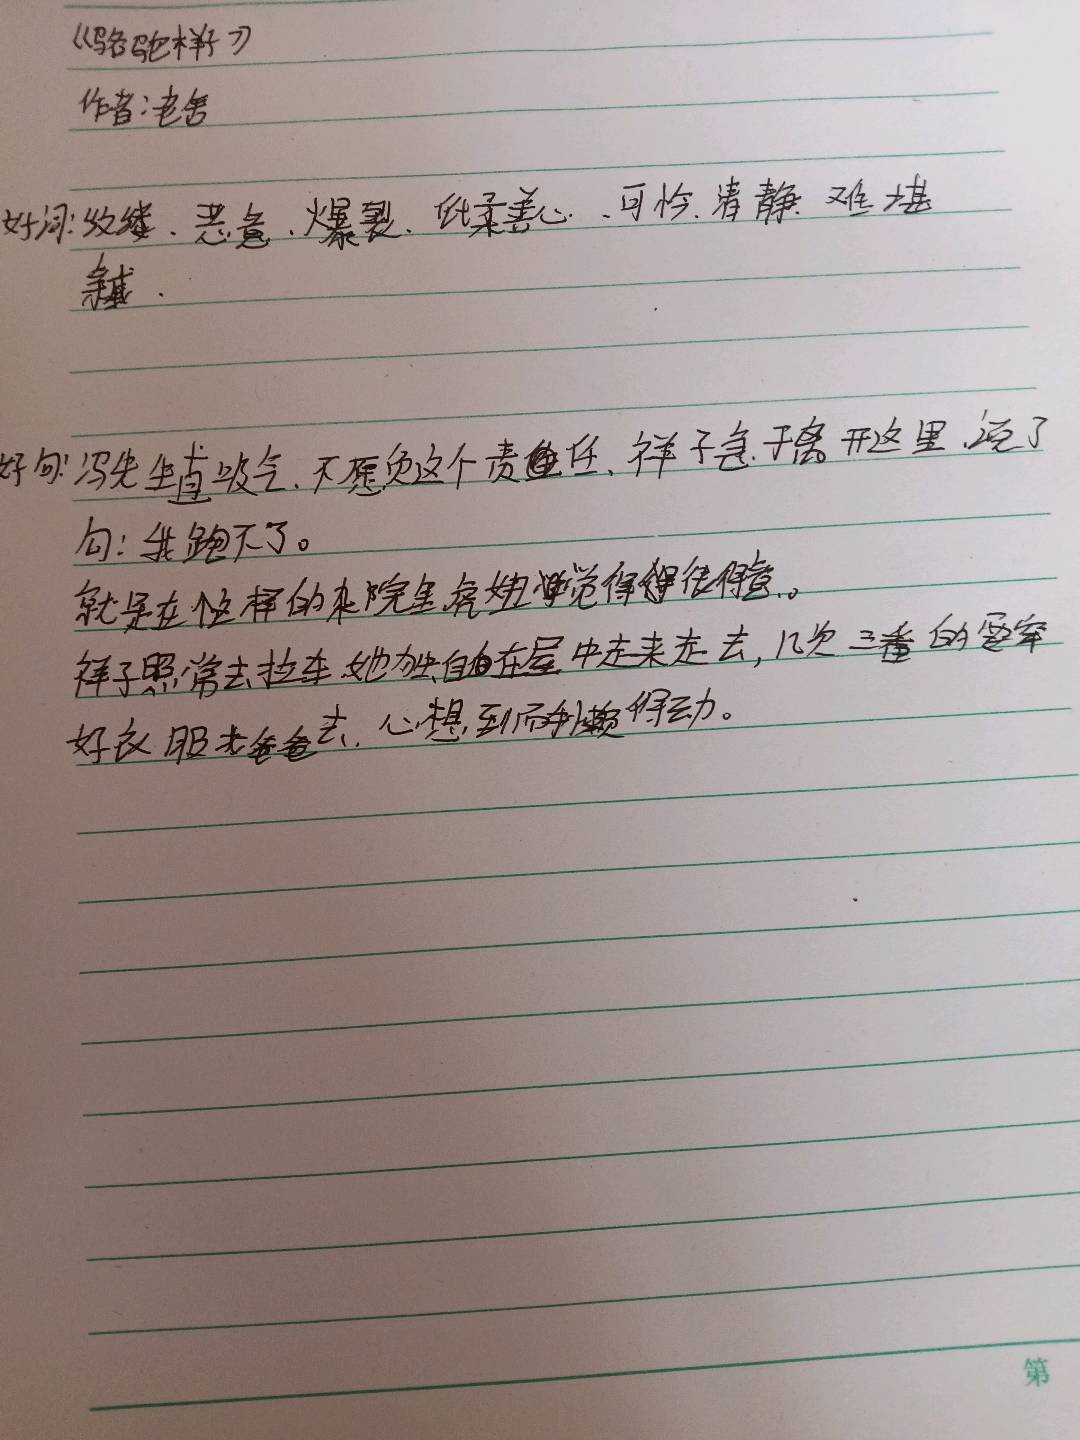 《骆驼祥子》
作者:老舍
好词:收缕、恶意、爆裂、低柔善心、可怜、清静、难堪
好句:冯先生直吸气、不愿负这个责任、祥子急于离开这里、说了
句:我跑不了。
就是在这样的杂院里虎妞觉得很得意。
祥子照常去拉车、她独自在屋中走来走去,几次三番的要穿
好衣服去爸爸去、心想到而手懒得动。
第